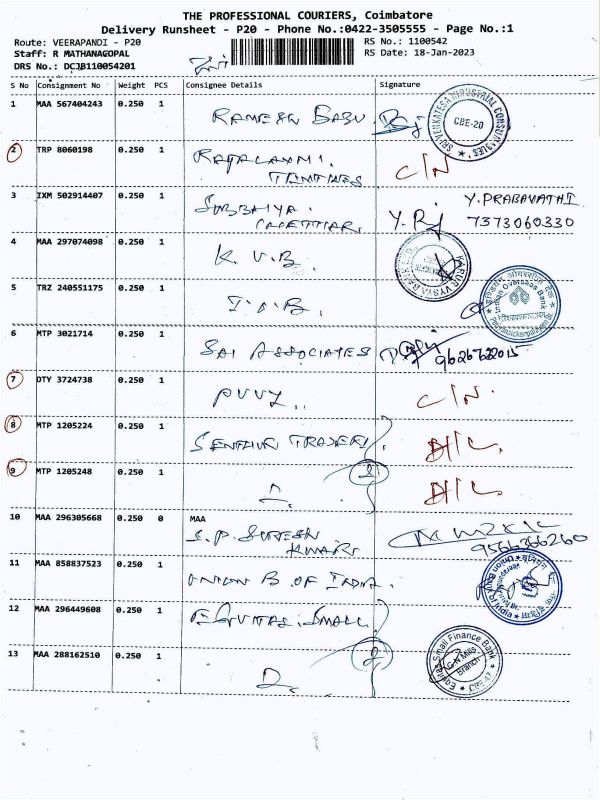 THE PROFESSIONAL COURIERS, Coimbatore
Delivery Runsheet - P20 - Phone No.:0422-3505555 - Page No.:1
Route: VEERAPANDI - P20
Staff: R MATHANAGOPAL
DRS No.: DCJB110054201
RS No.: 1100542
RS Date: 18-Jan-2023
S No Consignment No Weight PCS Consignee Details Signature
1 MAA 567404243 0.250 1 RAMESH BABU
SRI VENKATESA INDUSTRIAL CONSUMABLES CBE-20
2 TRP 8060198 0.250 1 RAJALAXMI C/N
3 IXM 502914407 0.250 1 SUBBAIYA Y.PRABAVATHI
CHETTIAR 7373060330
4 MAA 297074098 0.250 1 K.V.B.
5 TRZ 240551175 0.250 1 I.O.B.
Indian Overseas Bank
6 MTP 3021714 0.250 1 SAI ASSOCIATES
7 DTY 3724738 0.250 1 C/N.
8 MTP 1205224 0.250 1
9 MTP 1205248 0.250 1 2
10 MAA 296305668 0.250 0 MAA
S.P. SURESH
KUMAR 9566366260
11 MAA 858837523 0.250 1 UNION B. OF INDIA.
12 MAA 296449608 0.250 1 EQUITAS. SMALL
13 MAA 288162510 0.250 1 D. 2
Equitas Small Finance Bank
G-N Mills
Branch
CBE-47